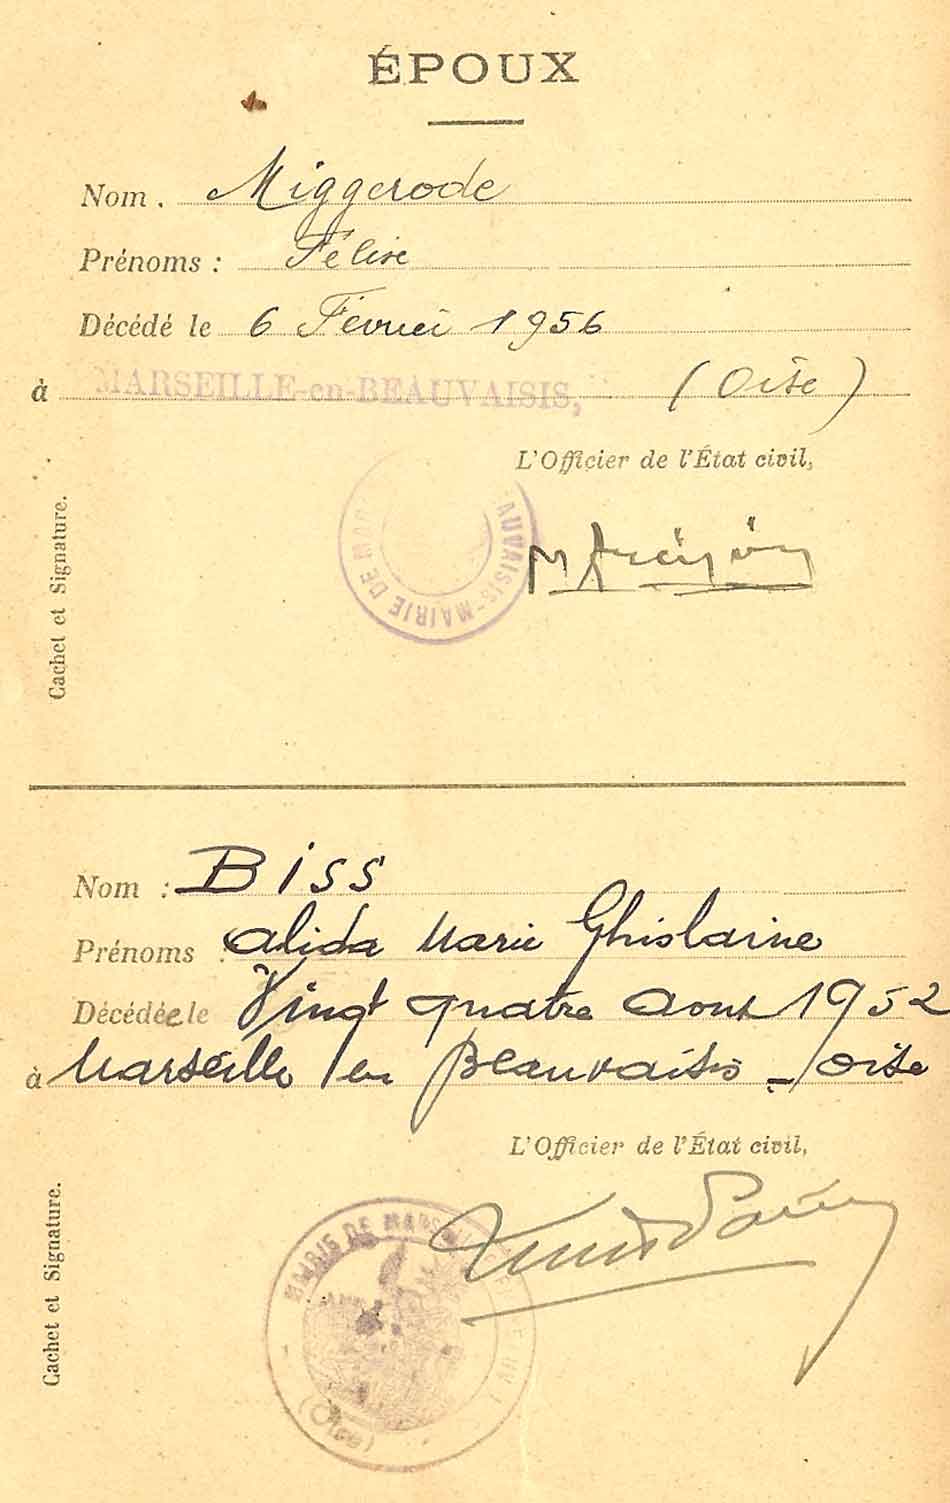 ÉPOUX
Nom . Miggerode
Prénoms : Félix
Décédé le 6 Février 1956
à MARSEILLE-en-BEAUVAISIS, (Oise)
L'Officier de l'État civil,
AUVAISIS-MAIRIE DE MAR
Cachet et Signature.
Nom : Biss
Prénoms : Alida Marie Ghislaine
Décédée le Vingt quatre Aout 1952
à Marseille en Beauvaisis - Oise
L'Officier de l'État civil,
MAIRIE DE MARSEILLE
(Oise)
Cachet et Signature.